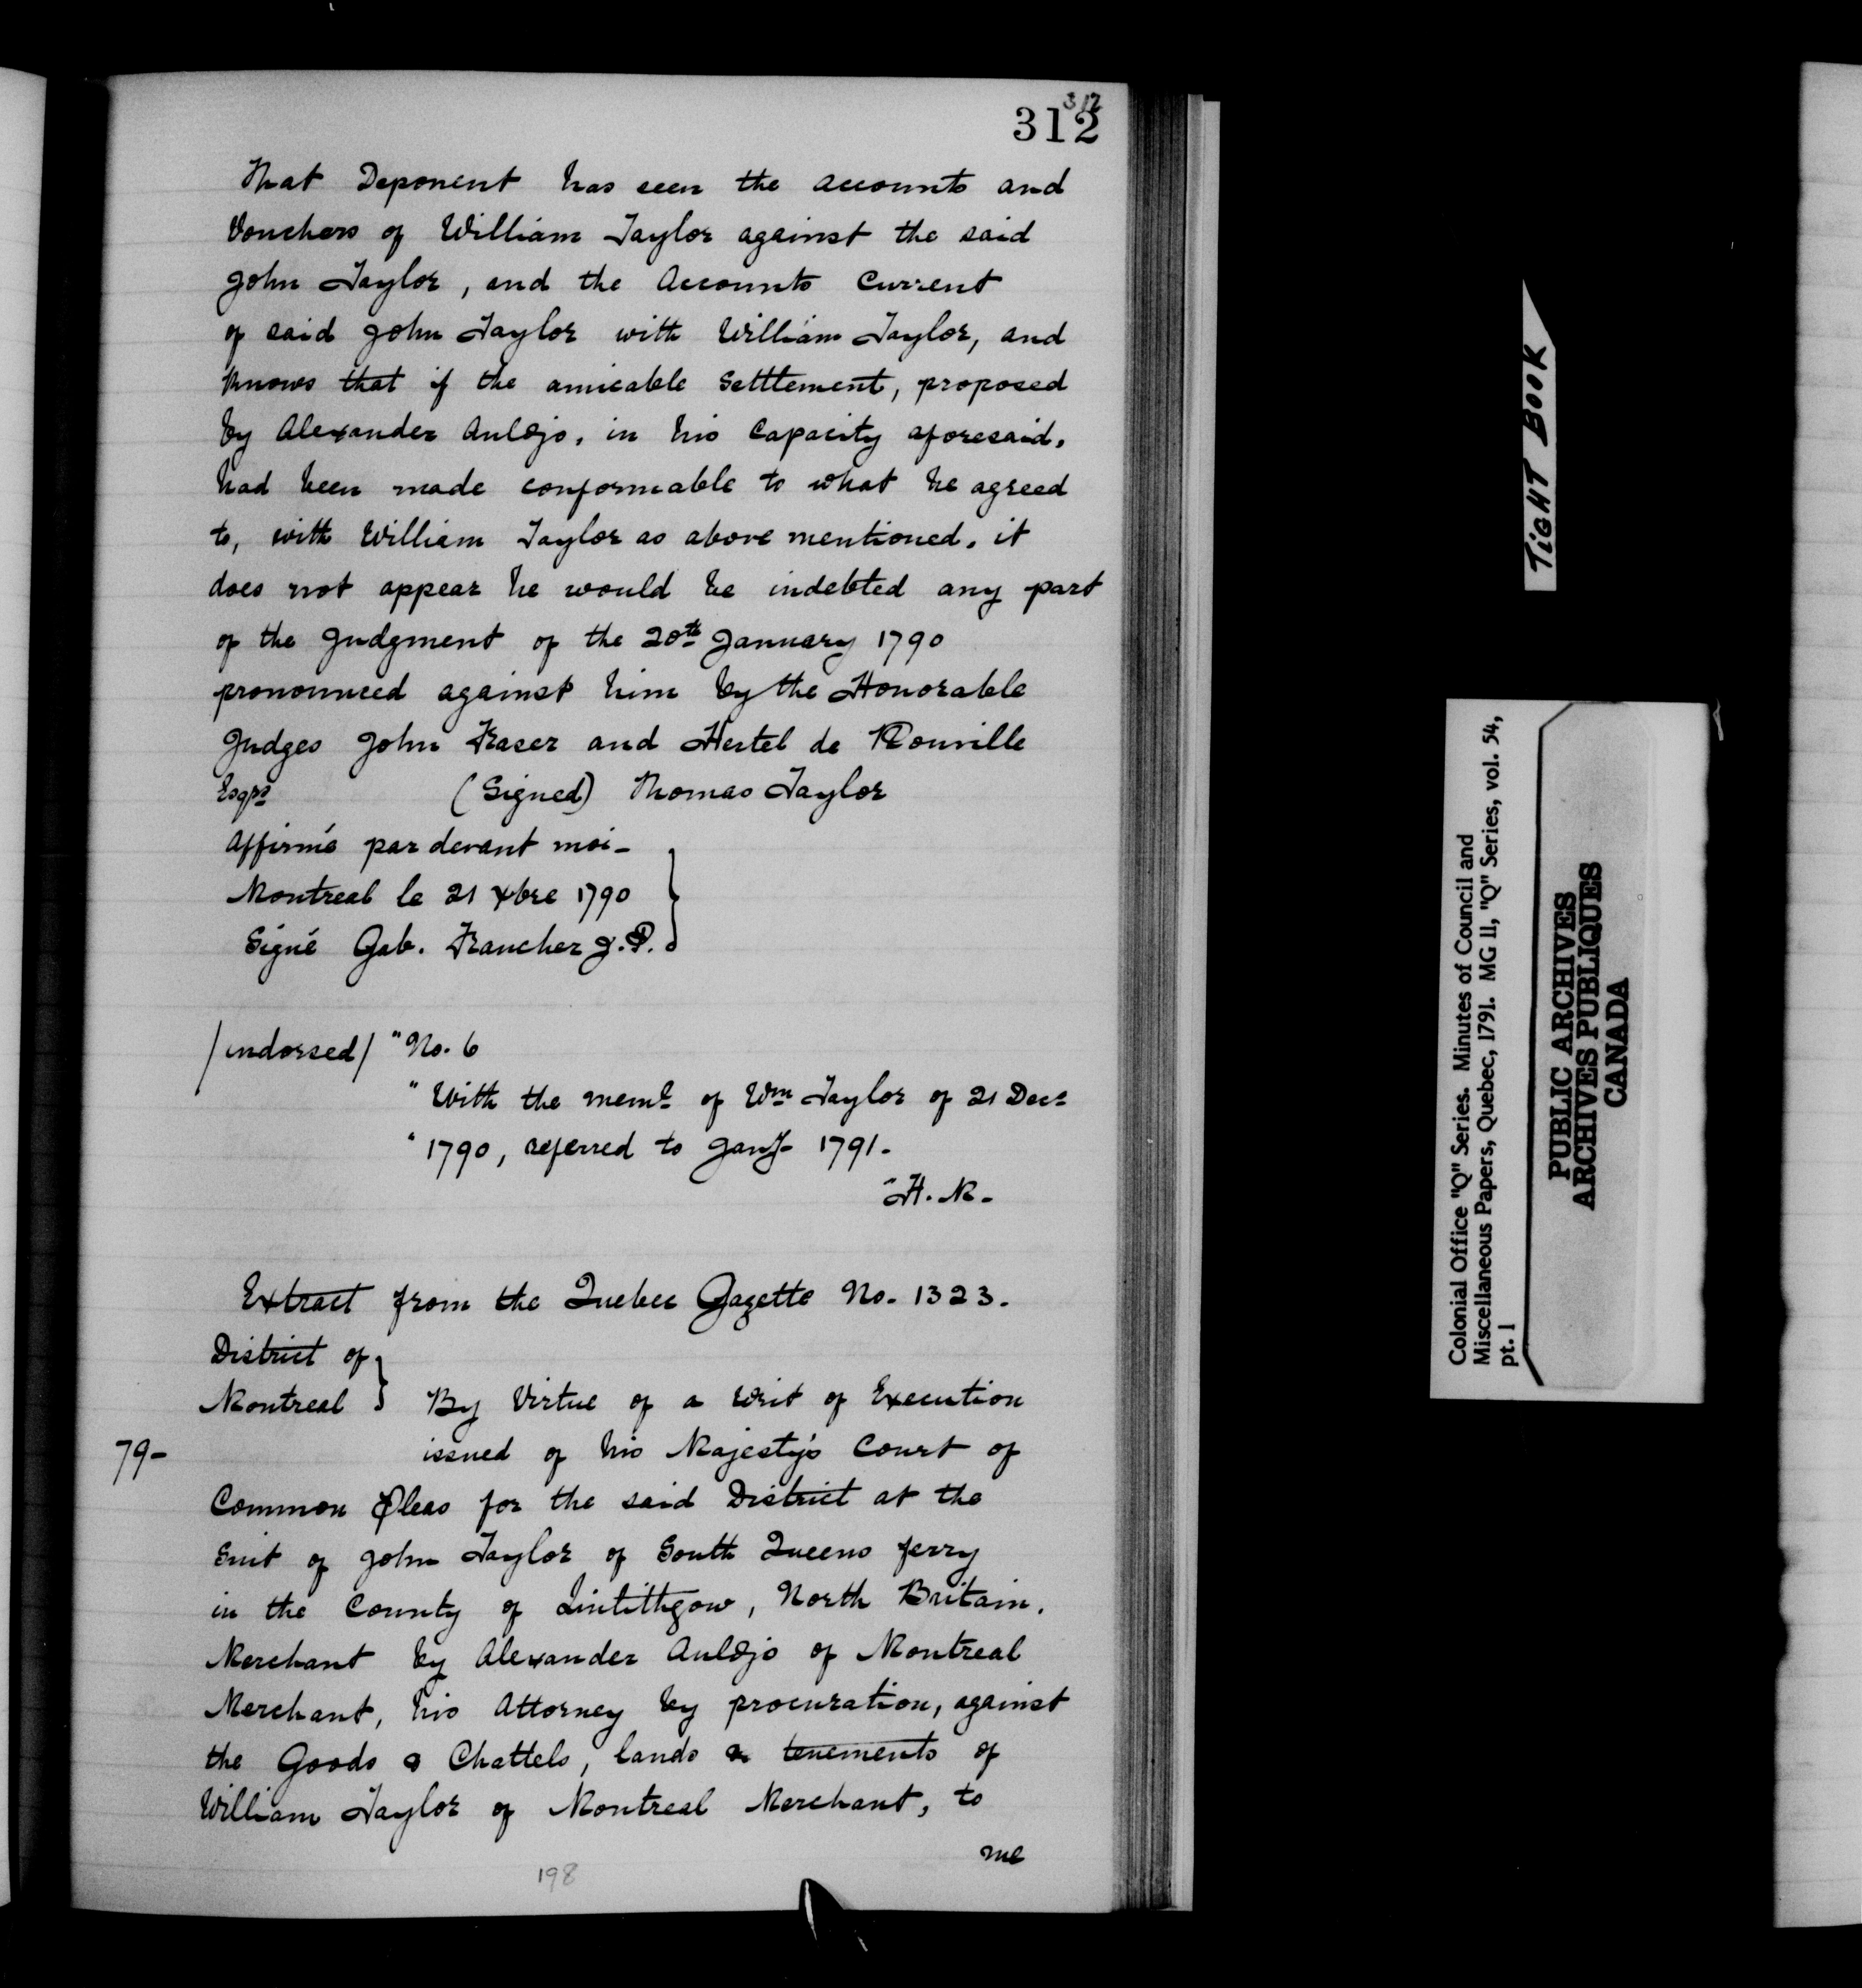 312
312
That Deponent has seen the accounts and
Vouchers of William Taylor against the said
John Taylor, and the Accounts Current
of said John Taylor with William Taylor, and
knows that if the amicable settlement, proposed
by Alexander Auldjo, in his Capacity aforesaid,
had been made conformable to what he agreed
to, with William Taylor as above mentioned, it
does not appear he would be indebted any part
of the Judgment of the 20th January 1790
pronounced against him by the Honorable
Judges John Fraser and Hertel de Rouville
Esqrs (Signed) Thomas Taylor
Affirmé par devant moi -
Montreal le 21 xbre 1790
Signé Gab. Francher J.P.
/indorsed/ "No. 6
" With the meml of Wm Taylor of 21 Decr
" 1790, referred to Jany 1791.
"H. M.
Extract from the Quebec Gazette No. 1323.
District of
Montreal } By Virtue of a Writ of Execution
79- issued of his Majesty's Court of
Common Pleas for the said District at the
Suit of John Taylor of South Queens ferry
in the County of Linlithgow, North Britain,
Merchant by Alexander Auldjo of Montreal
Merchant, his Attorney by procuration, against
the Goods & Chattels, lands & tenements of
William Taylor of Montreal Merchant, to
me
198
TIGHT BOOK
Colonial Office "Q" Series. Minutes of Council and
Miscellaneous Papers, Quebec, 1791. MG 11, "Q" Series, vol. 54,
pt. 1
PUBLIC ARCHIVES
ARCHIVES PUBLIQUES
CANADA